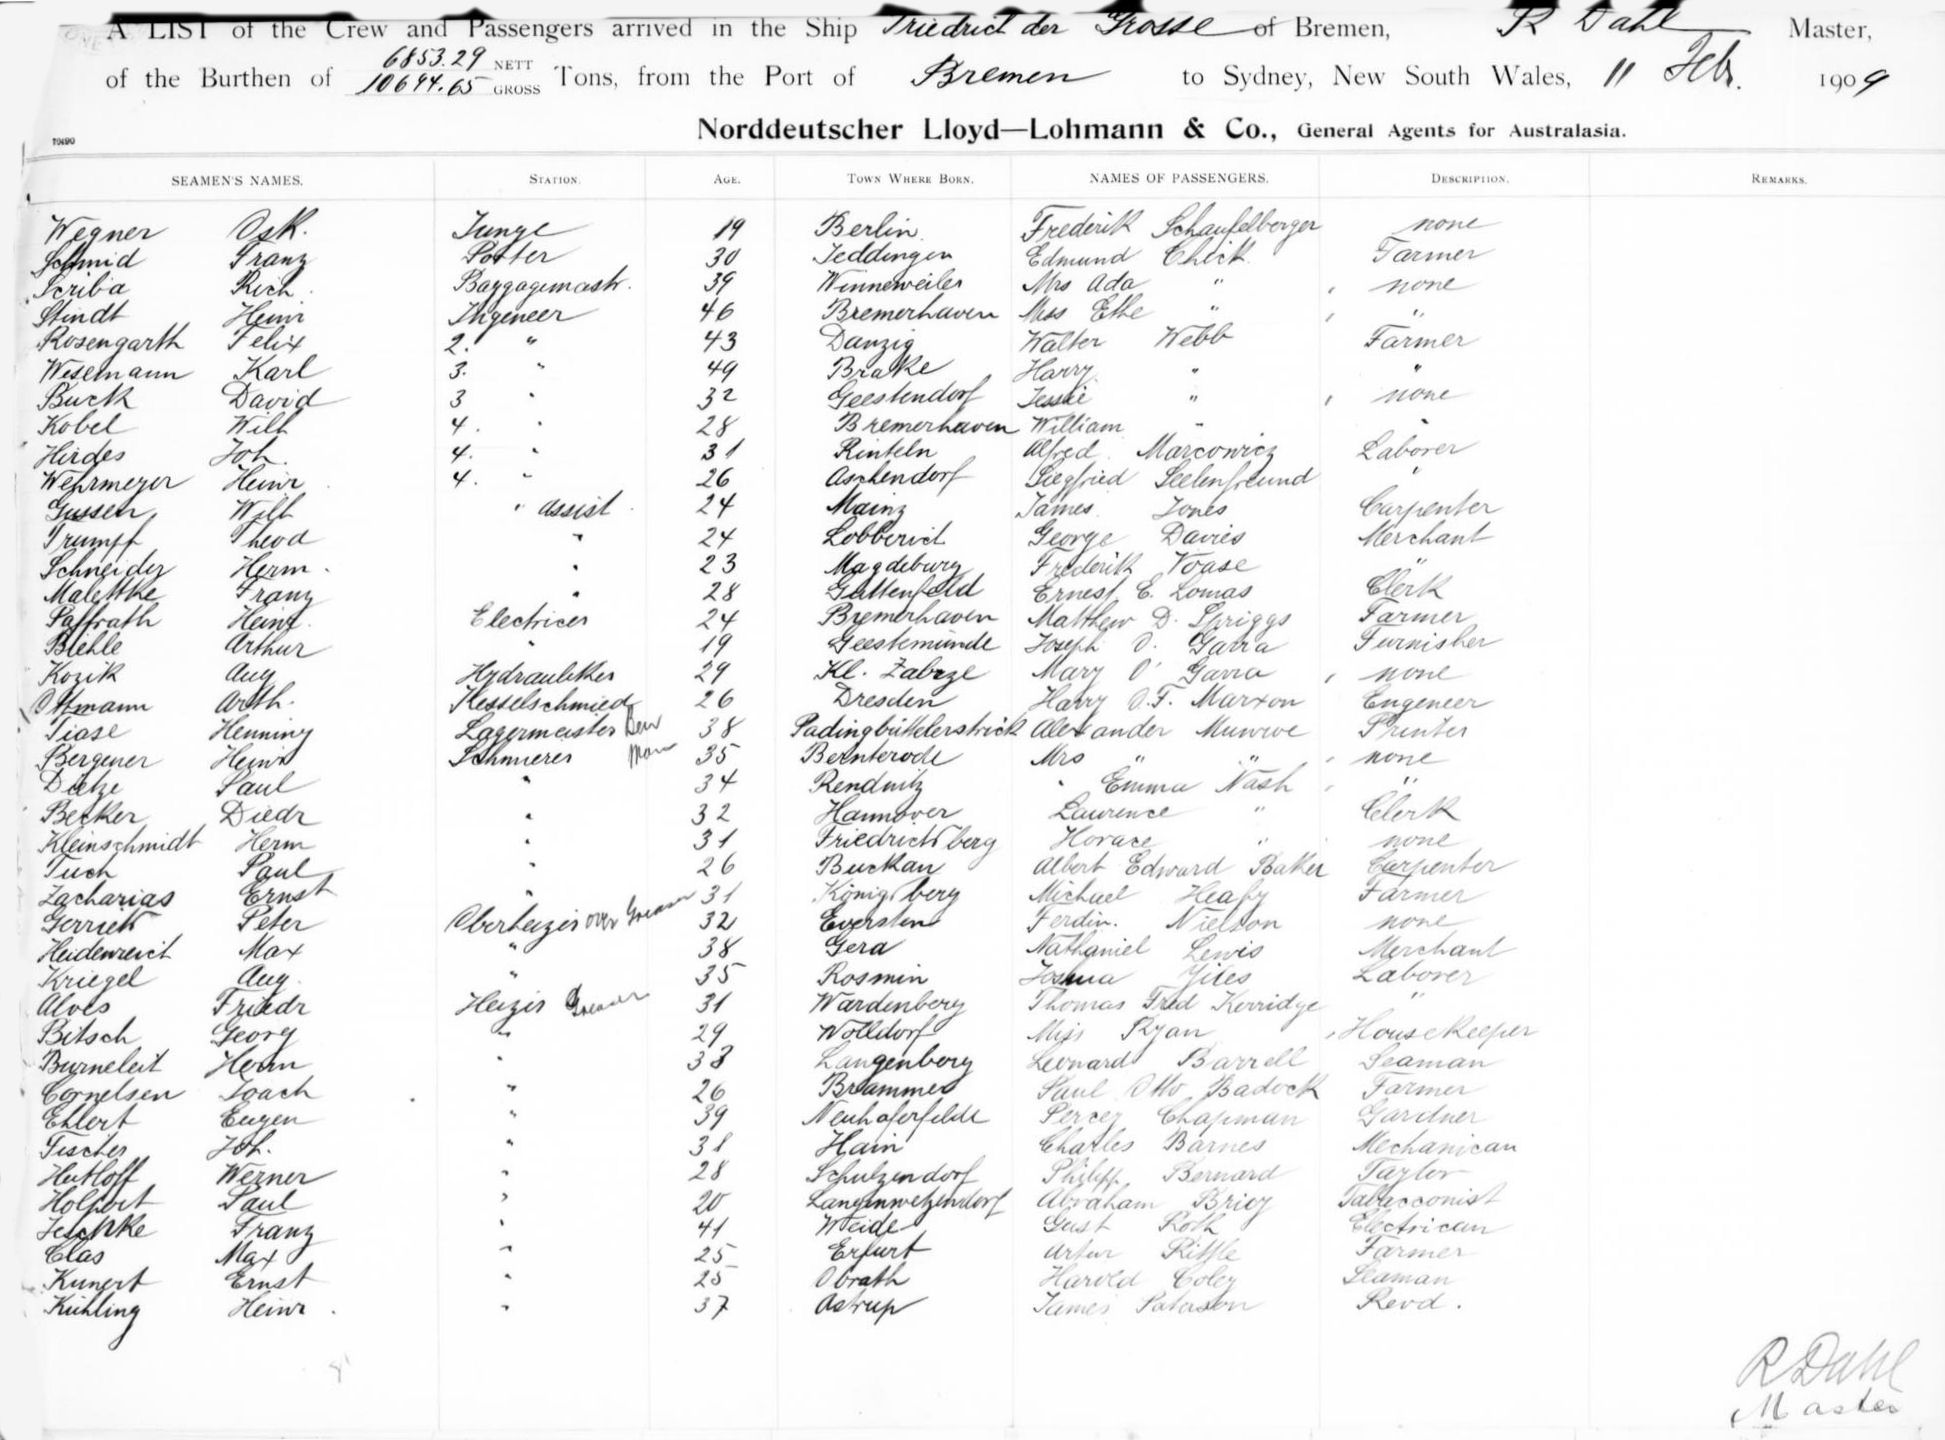 A LIST of the Crew and Passengers arrived in the Ship Friedrich der Grosse of Bremen, R Dahl Master,
of the Burthen of 6853.29 NETT 10694.65 GROSS Tons, from the Port of Bremen to Sydney, New South Wales, 11 Feb. 1909
Norddeutscher Lloyd—Lohmann & Co., General Agents for Australasia.
SEAMEN'S NAMES. STATION. AGE. TOWN WHERE BORN. NAMES OF PASSENGERS. DESCRIPTION. REMARKS.
Wegner Osk. Junge 19 Berlin Frederik Schaufelberger none
Schmid Franz Potter 30 Jeddingen Edmund Chick Farmer
Scriba Rich. Baggagemastr. 39 Winneweiler Mrs Ada " none
Stindt Heinr Ingeneer 46 Bremerhaven Miss Ethe " "
Rosengarth Felix 2. " 43 Danzig Walter Webb Farmer
Wesemann Karl 3. " 49 Brake Harry " "
Buck David 3 " 32 Geestendorf Jessie " none
Kobel Wilh 4. " 28 Bremerhaven William " "
Hirdes Joh. 4. " 31 Rinteln Alfred Marcowicz Laborer
Wehrmeyer Heinr 4. " 26 Aschendorf Siegfried Seelenfreund "
Gussen Wilh " assist. 24 Mainz James Jones Carpenter
Trumpf Theod " 24 Lobberich George Davies Merchant
Schneider Herm. " 23 Magdeburg Frederik Voase "
Malettke Franz " 28 Guttenfeld Ernest E. Lomas Clerk
Paffrath Heinr. Electricer 24 Bremerhaven Matthew D. Spriggs Farmer
Biehle Arthur " 19 Geestemünde Joseph O. Garra Furnisher
Kozik Aug Hydrauliker 29 Kl. Zabrze Mary O' Garra none
Ottmann Arth. Kesselschmied 26 Dresden Harry O.F. Marxon Engeneer
Tiase Henning Lagermeister 38 Padingbüttelerstrich Alexander Munroe Printer
Bergener Heinr Schmierer 35 Bernterode Mrs " " none
Dietze Paul " 34 Rendnitz " Emma Nash "
Becker Diedr " 32 Hannover Laurence " Clerk
Kleinschmidt Herm " 31 Friedrichsberg Horace " none
Tuch Paul " 26 Buckau Albert Edward Baker Carpenter
Zacharias Ernst " 31 Königsberg Michael Heafy Farmer
Gerriets Peter Oberheizer over Greaser 32 Eversten Ferdin. Nielson none
Heidenreich Max " 38 Gera Nathaniel Lewis Merchant
Kriegel Aug. " 35 Rosmin Joshua Giles Laborer
Alves Friedr Heizer Greaser 31 Wardenberg Thomas Fred Kerridge "
Bitsch Georg " 29 Wolldorf Miss Ryan Housekeeper
Burneleit Herm " 33 Langenberg Leonard Barrell Seaman
Cornelsen Joach " 26 Brammer Paul Otto Badock Farmer
Ehlert Eugen " 39 Neuhoferfelde Percey Chapman Gardner
Fischer Joh. " 31 Hain Charles Barnes Mechanican
Hutloff Werner " 28 Schulzendorf Philipp Bernard Taylor
Holport Paul " 20 Langenwetzendorf Abraham Brier Tabacconist
Jeschke Franz " 41 Weide Gust Roth Electrican
Clas Max " 25 Erfurt Artur Rittle Farmer
Kunert Ernst " 25 Obrath Harold Coley Seaman
Kühling Heinr. " 37 Astrup James Paterson Revd.
R Dahl
Master